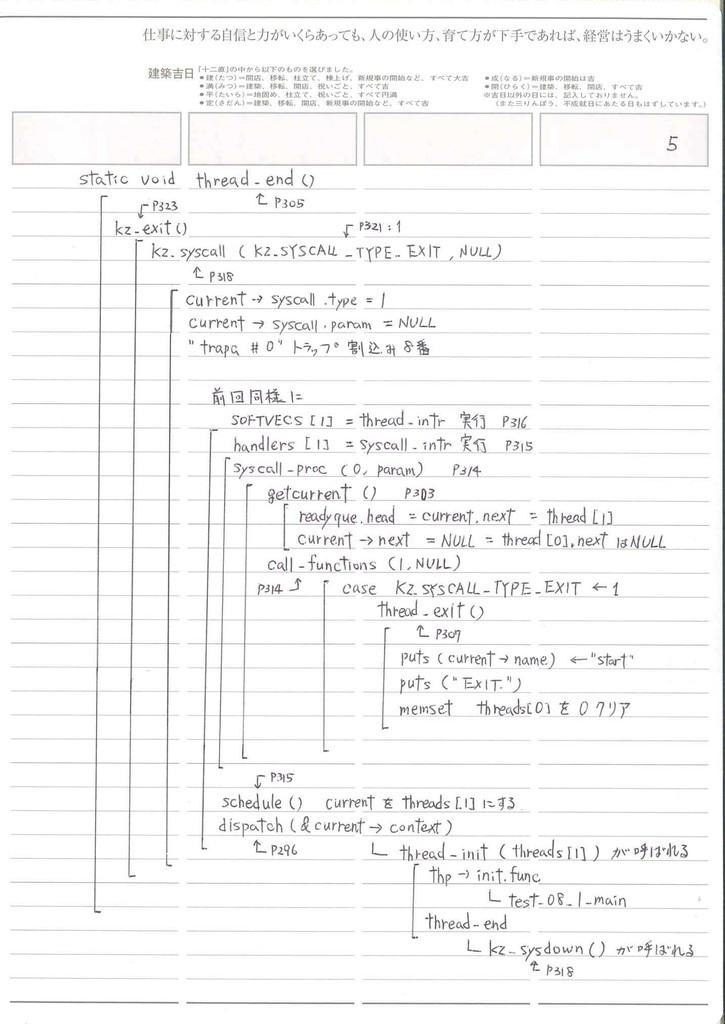 仕事に対する自信と力がいくらあっても、人の使い方、育て方が下手であれば、経営はうまくいかない。
建築吉日
「十二直」の中から以下のものを選びました。
●建(たつ)=開店、移転、柱立て、棟上げ、新規事の開始など、すべて大吉
●満(みつ)=建築、移転、開店、祝いごと、すべて吉
●平(たいら)=地固め、柱立て、祝いごと、すべて円満
●定(さだん)=建築、移転、開店、新規事の開始など、すべて吉
●成(なる)=新規事の開始は吉
●開(ひらく)=建築、移転、開店、すべて吉
※吉日以外の日には、記入しておりません。
(また三りんぼう、不成就日にあたる日もはずしています。)
5
static void thread_end()
P305
P323
kz_exit()
P321:1
kz_syscall (KZ_SYSCALL_TYPE_EXIT, NULL)
P318
current → syscall.type = 1
current → syscall.param = NULL
"trapa #0" トラップ 割込み8番
前回同様に
SOFTVECS [1] = thread_intr 実行 P316
handlers [1] = syscall_intr 実行 P315
syscall_proc (0, param) P314
getcurrent () P303
readyque.head = current.next = thread[1]
current → next = NULL = thread[0].next はNULL
call_functions (1, NULL)
P314
case KZ_SYSCALL_TYPE_EXIT ← 1
thread_exit()
P307
puts (current → name) ← "start"
puts (" EXIT.")
memset threads[0] を 0クリア
P315
schedule () current を threads [1] にする
dispatch (& current → context)
P296
thread_init (threads[1]) が呼ばれる
thp → init.func
test_08_1_main
thread_end
kz_sysdown() が呼ばれる
P318